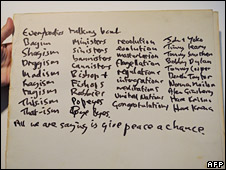 Everybodies talking bout
Bagism ministers revolution John & Yoko
Shagism sinisters evolution Timmy Leary
Dragism bannisters masturbation Tommy Smothers
Madism cannisters flagellation Bobby Dylan
Ragism Bishops regulations Tommy Cooper
Tagism Fishops integrations Derek Taylor
Rabbis meditations Norman Mailer
This ism Popeyes United Nations Alan Ginsberg
That ism Bye Byes Congratulations Hare Krishna
Hare Krishna
All we are saying is give peace a chance.
AFP